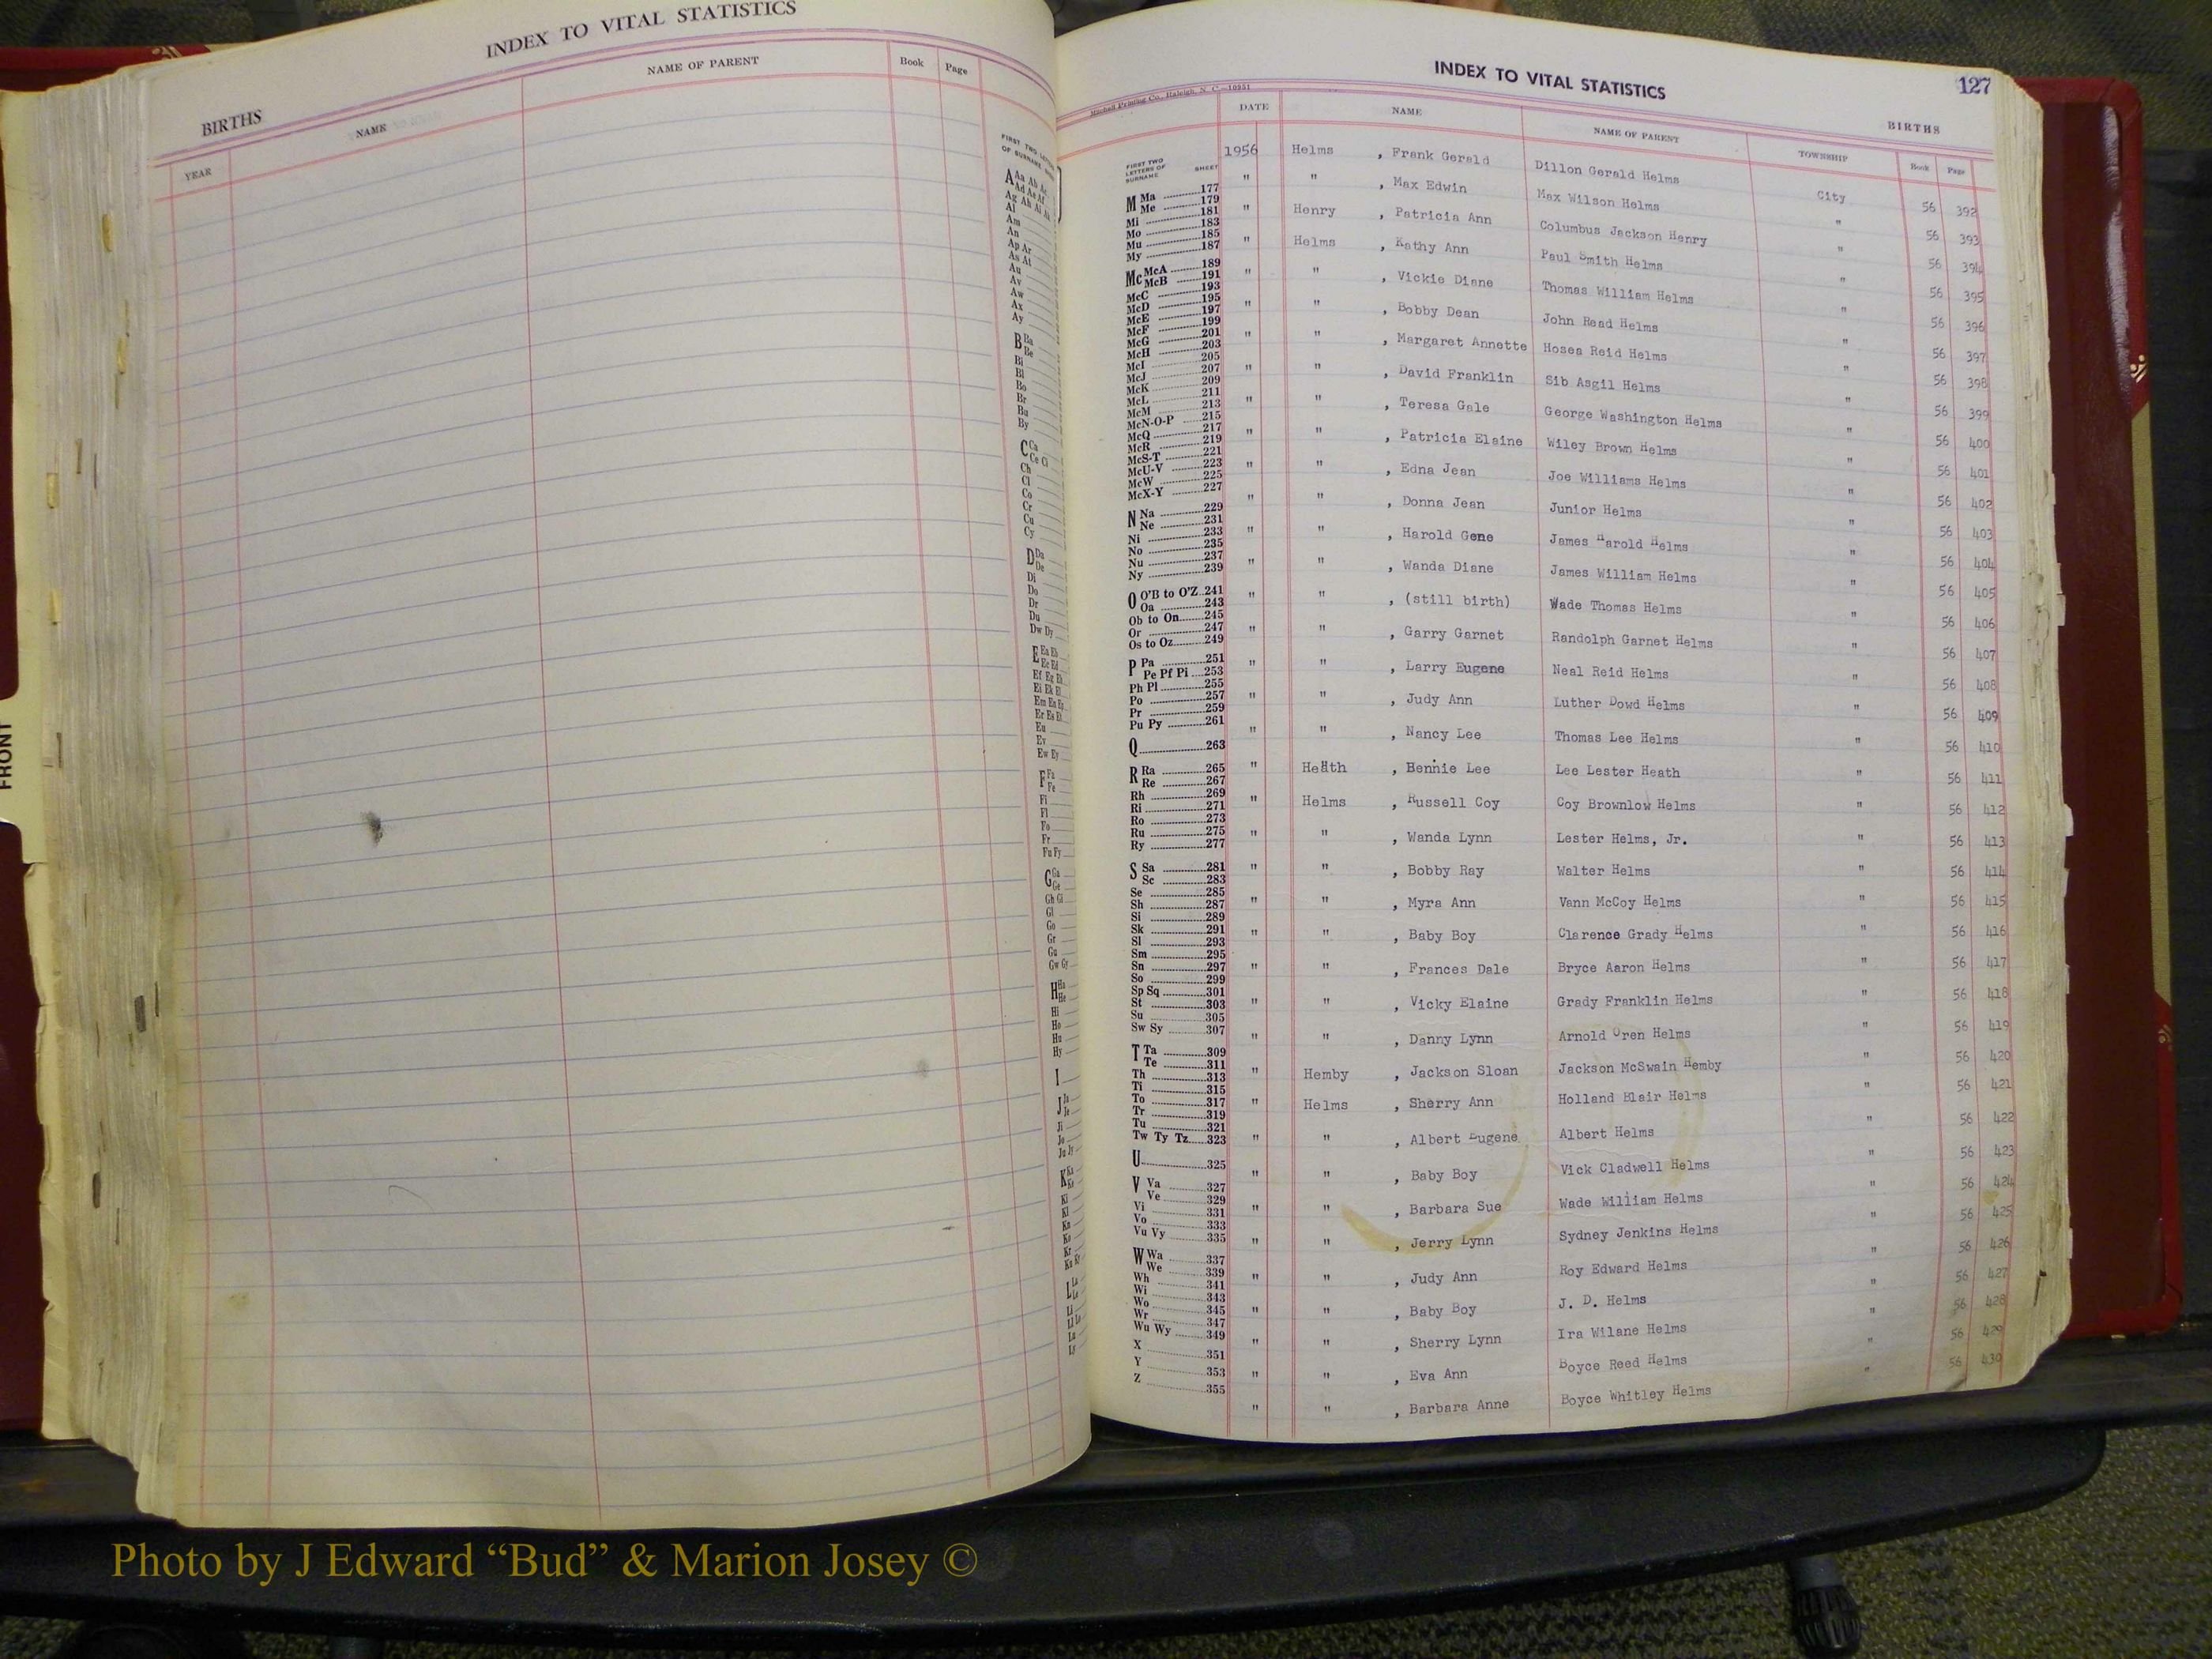 INDEX TO VITAL STATISTICS
BIRTHS
YEAR NAME NAME OF PARENT Book Page
FIRST TWO LETTERS
OF SURNAME
A Aa Ab Ac
Ad Ae Af
Ag Ah Ai
Al
Am
An
Ap Ar
As At
Au
Av
Aw
Ax
Ay
B Ba
Be
Bi
Bl
Bo
Br
Bu
By
C Ca
Ce Ci
Ch
Cl
Co
Cr
Cu
Cy
D Da
De
Di
Do
Dr
Du
Dw Dy
E Ea Eb
Ec Ed
Ef Eg Eh
Ei Ek El
Em En Ep
Er Es Et
Eu
Ev
Ew Ey
F Fa
Fe
Fi
Fl
Fo
Fr
Fu Fy
G Ga
Ge
Gh Gi
Gl
Go
Gr
Gu
Gw Gy
H Ha
He
Hi
Ho
Hu
Hy
I
J Ja
Je
Ji
Jo
Ju Jy
K Ka
Ke
Ki
Kl
Kn
Ko
Kr
L La
Le
Li
Lu
Ly
FRONT
INDEX TO VITAL STATISTICS 127
Mitchell Printing Co., Raleigh, N. C.—10951
BIRTHS
DATE NAME NAME OF PARENT TOWNSHIP Book Page
FIRST TWO
LETTERS OF
SURNAME SHEET
M Ma 177
Me 179
Mi 181
Mo 183
Mu 185
My 187
Mc McA 189
McB 191
McC 193
McD 195
McE 197
McF 199
McG 201
McH 203
McI 205
McJ 207
McK 209
McL 211
McM 213
McN-O-P 215
McQ 217
McR 219
McS-T 221
McU-V 223
McW 225
McX-Y 227
N Na 229
Ne 231
Ni 233
No 235
Nu 237
Ny 239
O O'B to O'Z 241
Oa 243
Ob to On 245
Or 247
Os to Oz 249
P Pa 251
Pe Pf Pi 253
Ph Pl 255
Po 257
Pr 259
Pu Py 261
Q 263
R Ra 265
Re 267
Rh 269
Ri 271
Ro 273
Ru 275
Ry 277
S Sa 281
Sc 283
Se 285
Sh 287
Si 289
Sk 291
Sl 293
Sm 295
Sn 297
So 299
Sp Sq 301
St 303
Su 305
Sw Sy 307
T Ta 309
Te 311
Th 313
Ti 315
To 317
Tr 319
Tu 321
Tw Ty Tz 323
U 325
V Va 327
Ve 329
Vi 331
Vo 333
Vu Vy 335
W Wa 337
We 339
Wh 341
Wi 343
Wo 345
Wr 347
Wu Wy 349
X 351
Y 353
Z 355
1956 Helms , Frank Gerald Dillon Gerald Helms City 56 392
" " , Max Edwin Max Wilson Helms " 56 393
" Henry , Patricia Ann Columbus Jackson Henry " 56 394
" Helms , Kathy Ann Paul Smith Helms " 56 395
" " , Vickie Diane Thomas William Helms " 56 396
" " , Bobby Dean John Read Helms " 56 397
" " , Margaret Annette Hosea Reid Helms " 56 398
" " , David Franklin Sib Asgil Helms " 56 399
" " , Teresa Gale George Washington Helms " 56 400
" " , Patricia Elaine Wiley Brown Helms " 56 401
" " , Edna Jean Joe Williams Helms " 56 402
" " , Donna Jean Junior Helms " 56 403
" " , Harold Gene James Harold Helms " 56 404
" " , Wanda Diane James William Helms " 56 405
" " , (still birth) Wade Thomas Helms " 56 406
" " , Garry Garnet Randolph Garnet Helms " 56 407
" " , Larry Eugene Neal Reid Helms " 56 408
" " , Judy Ann Luther Dowd Helms " 56 409
" " , Nancy Lee Thomas Lee Helms " 56 410
" Heath , Bennie Lee Lee Lester Heath " 56 411
" Helms , Russell Coy Coy Brownlow Helms " 56 412
" " , Wanda Lynn Lester Helms, Jr. " 56 413
" " , Bobby Ray Walter Helms " 56 414
" " , Myra Ann Vann McCoy Helms " 56 415
" " , Baby Boy Clarence Grady Helms " 56 416
" " , Frances Dale Bryce Aaron Helms " 56 417
" " , Vicky Elaine Grady Franklin Helms " 56 418
" " , Danny Lynn Arnold Oren Helms " 56 419
" Hemby , Jackson Sloan Jackson McSwain Hemby " 56 420
" Helms , Sherry Ann Holland Blair Helms " 56 421
" " , Albert Eugene Albert Helms " 56 422
" " , Baby Boy Vick Cladwell Helms " 56 423
" " , Barbara Sue Wade William Helms " 56 424
" " , Jerry Lynn Sydney Jenkins Helms " 56 425
" " , Judy Ann Roy Edward Helms " 56 426
" " , Baby Boy J. D. Helms " 56 427
" " , Sherry Lynn Ira Wilane Helms " 56 428
" " , Eva Ann Boyce Reed Helms " 56 429
" " , Barbara Anne Boyce Whitley Helms " 56 430
Photo by J Edward “Bud” & Marion Josey ©